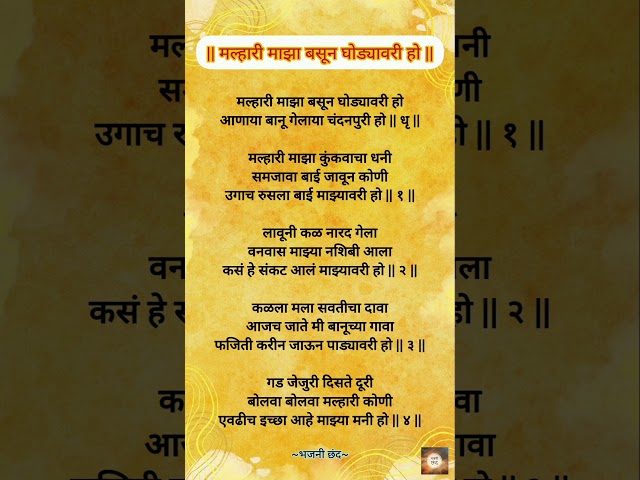 || मल्हारी माझा बसून घोड्यावरी हो ||
मल्हारी माझा बसून घोड्यावरी हो
आणाया बानू गेलाया चंदनपुरी हो || धृ ||
मल्हारी माझा कुंकवाचा धनी
समजावा बाई जावून कोणी
उगाच रुसला बाई माझ्यावरी हो || १ ||
लावूनी कळ नारद गेला
वनवास माझ्या नशिबी आला
कसं हे संकट आलं माझ्यावरी हो || २ ||
कळला मला सवतीचा दावा
आजच जाते मी बानूच्या गावा
फजिती करीन जाऊन पाड्यावरी हो || ३ ||
गड जेजुरी दिसते दूरी
बोलवा बोलवा मल्हारी कोणी
एवढीच इच्छा आहे माझ्या मनी हो || ४ ||
~भजनी छंद~